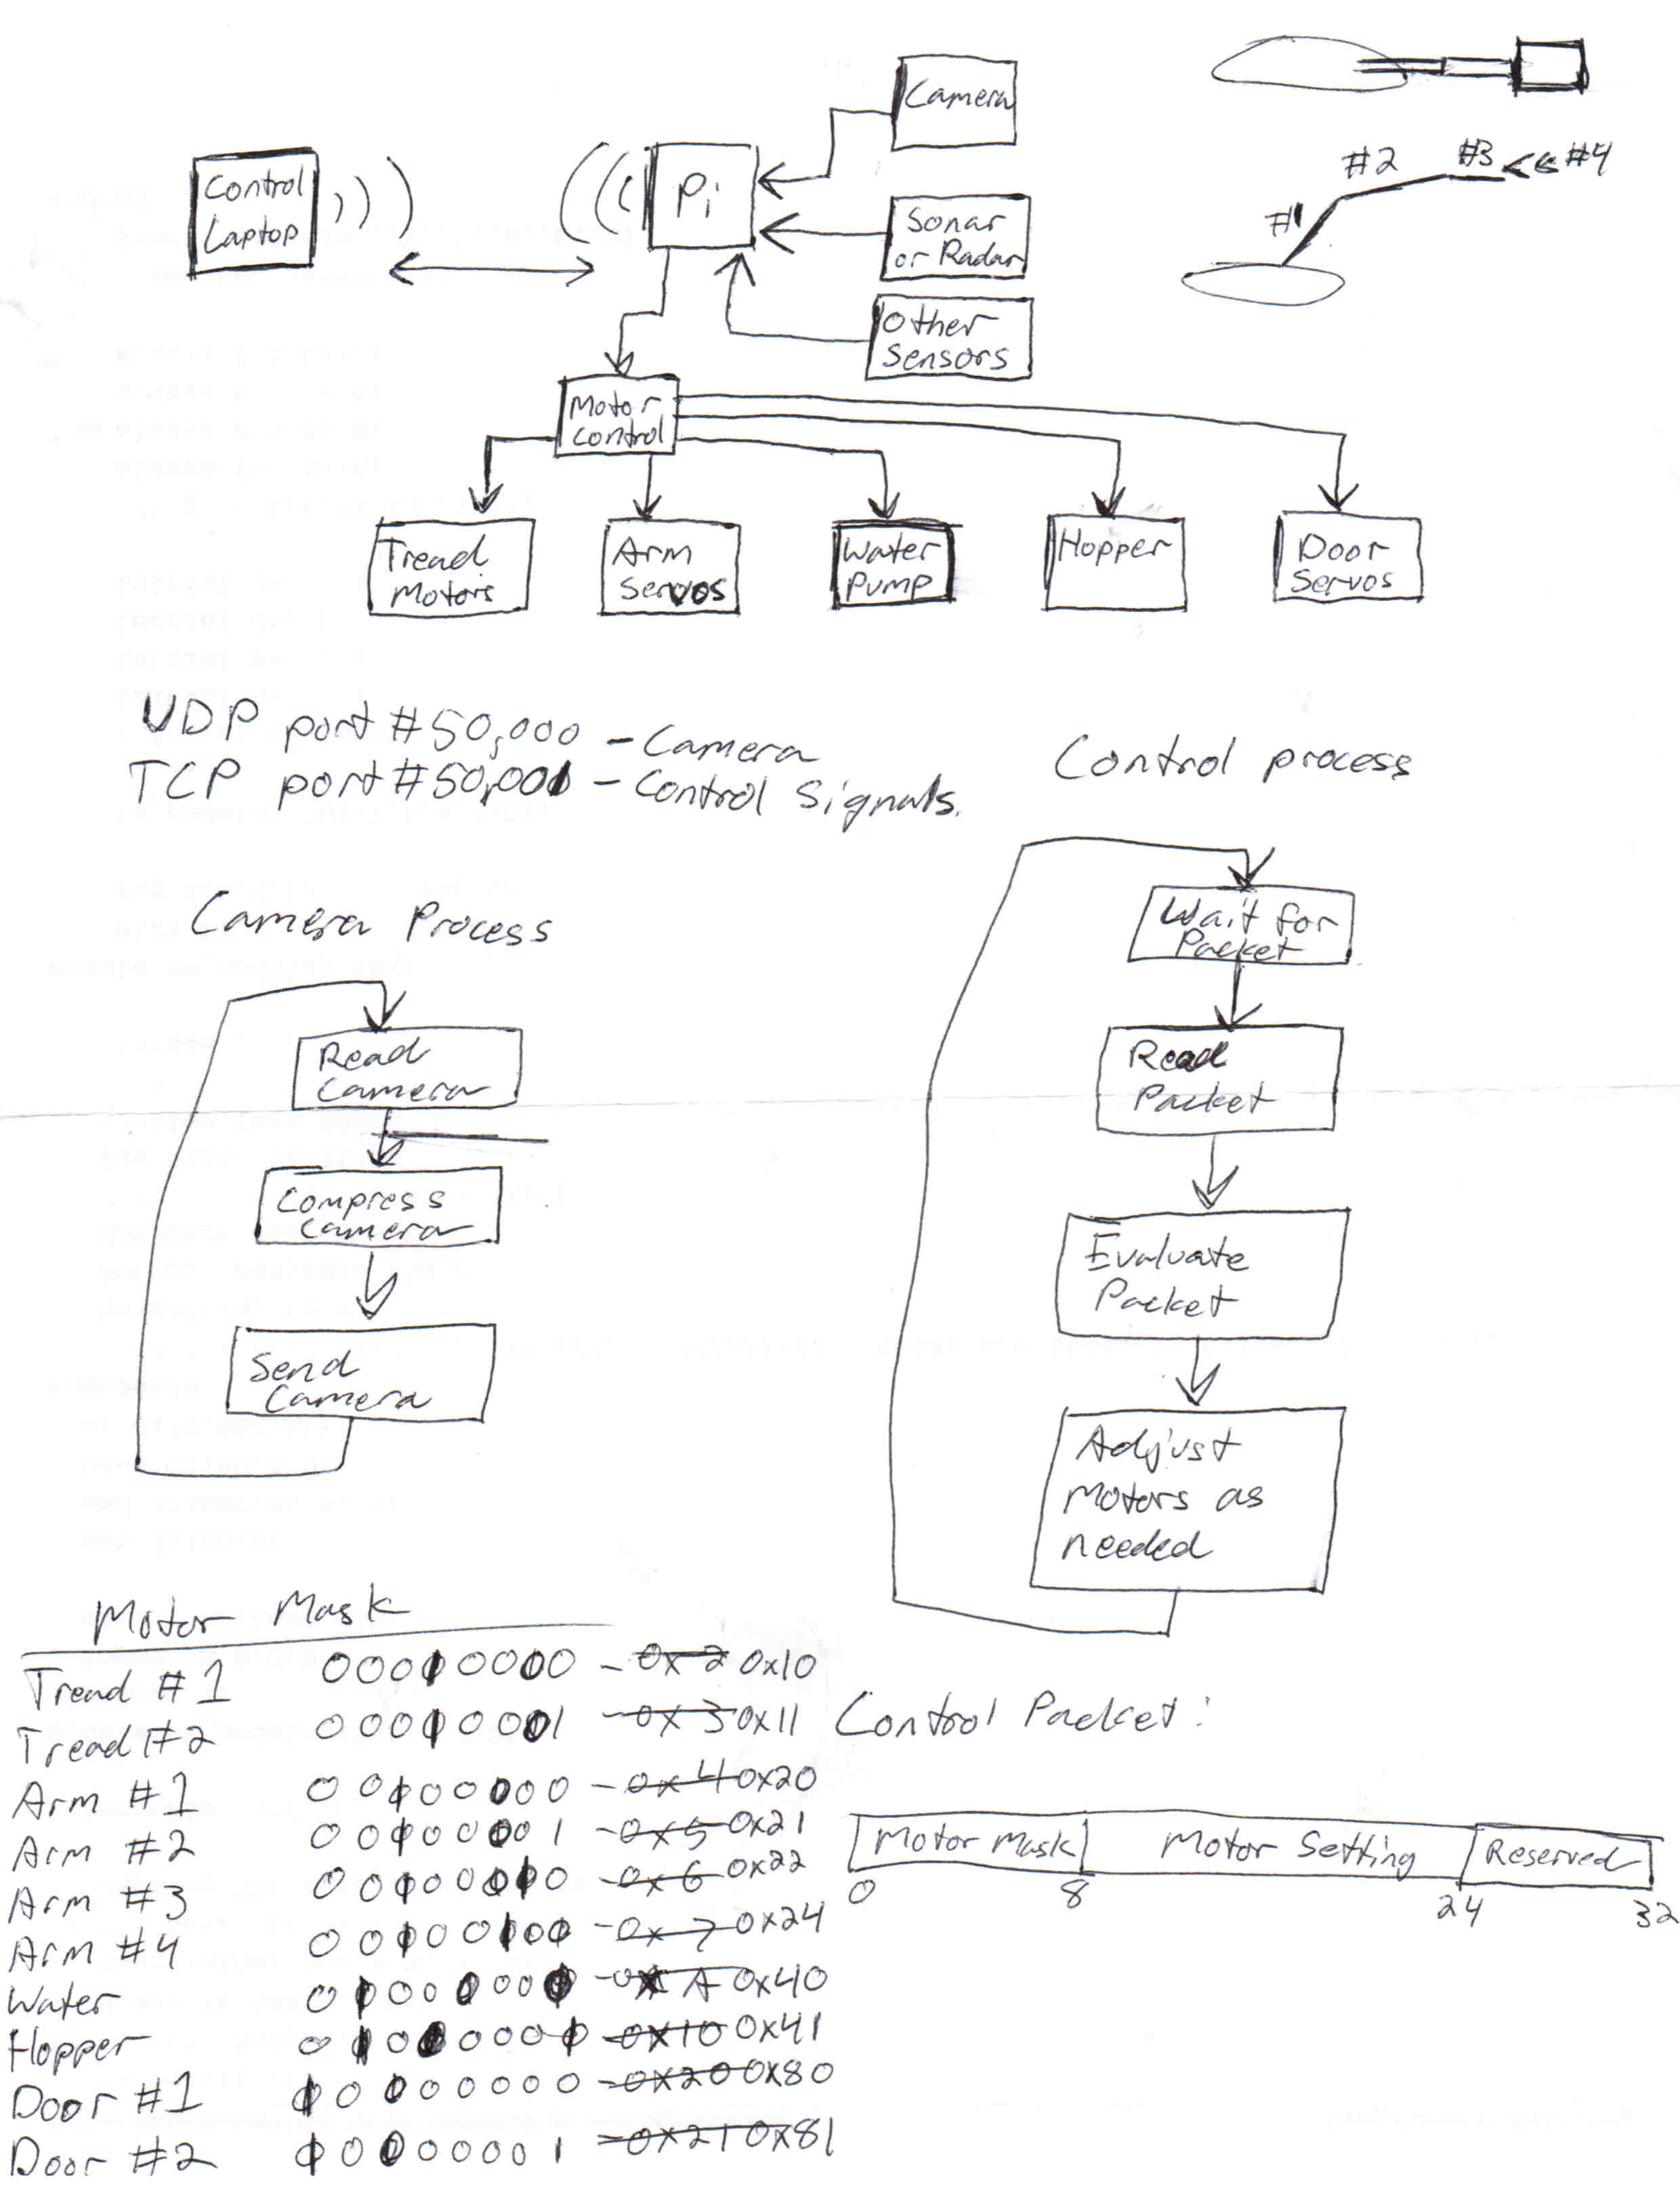 Camera
Control
Laptop
Pi
Sonar
or Radar
Other
Sensors
#1
#2
#3
#4
Motor
Control
Tread
Motors
Arm
Servos
Water
Pump
Hopper
Door
Servos
UDP port #50,000 - Camera
TCP port #50,001 - Control Signals.
Camera Process
Read
Camera
Compress
Camera
Send
Camera
Control process
Wait for
Packet
Read
Packet
Evaluate
Packet
Adjust
Motors as
needed
Motor Mask
Tread #1 00010000 - 0x2 0x10
Tread #2 00010001 - 0x3 0x11
Arm #1 00100000 - 0x4 0x20
Arm #2 00100001 - 0x5 0x21
Arm #3 00100010 - 0x6 0x22
Arm #4 00100100 - 0x7 0x24
Water 01000000 - A 0x40
Hopper 01000001 - 0x10 0x41
Door #1 10000000 - 0x20 0x80
Door #2 10000001 - 0x21 0x81
Control Packet:
Motor Mask Motor Setting Reserved
0 8 24 32